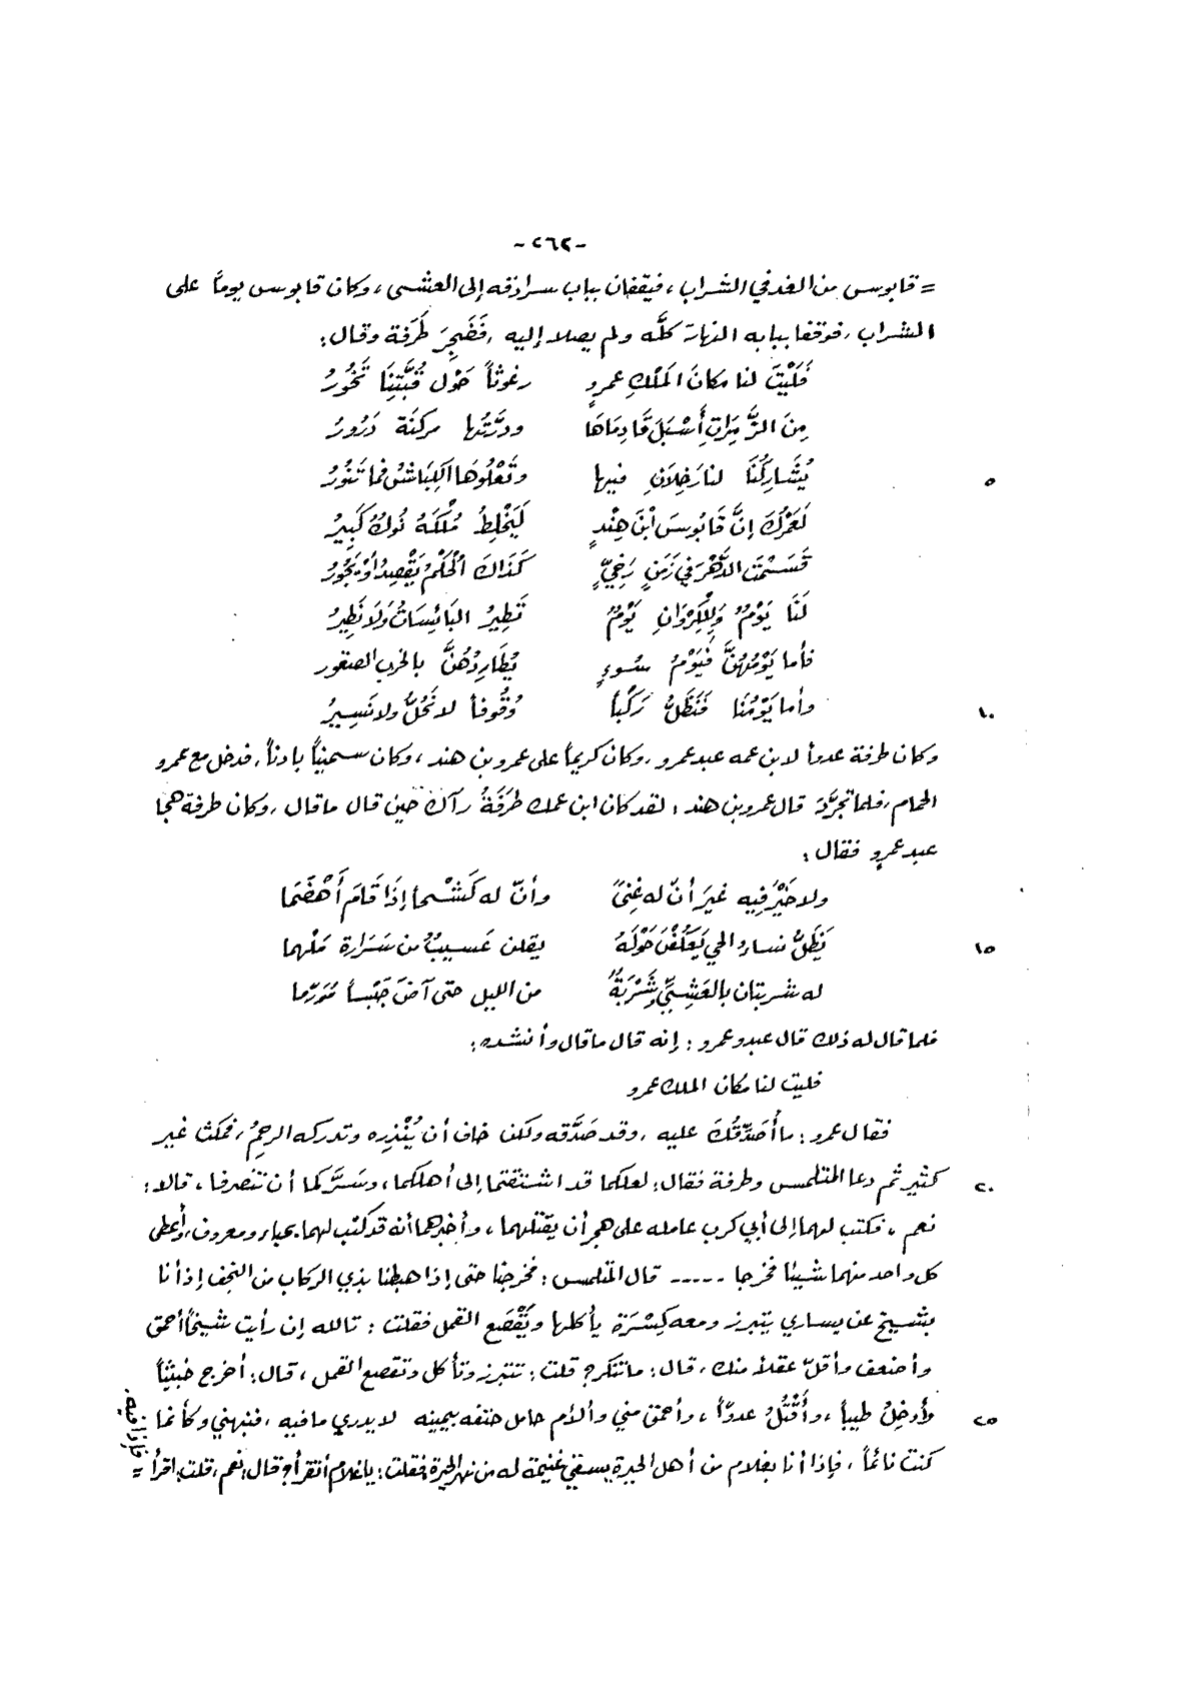 -٢٦٢-
= قابوس من الغد في الشراب ، فيقفان بباب سرادقه إلى العشي ، وكان قابوس يوماً على
الشراب ، فوقفا ببابه النهار كلَّه ولم يصلا إليه ، فَضَجِرَ طَرَفة وقال :
فَلَيْتَ لنا مكانَ المَلْكِ عمرٍو رغوثاً حَوْل قُبَّتِنَا تَخُورُ
مِنَ الزَّمِرَاتِ أَسْبَلَ قَادِمَاهَا ودرَّتُها مركنَة دَرُورُ
٥ يُشَارِكُنَا لنا رَخِلاَنِ فيها وتَعْلُوهَا الكِبَاشُ فما تَنُورُ
لَعَمْرُكَ إنَّ قَابُوسَ ابْنَ هِنْدٍ لَيَخْلِطُ مُلْكَهُ نُوكٌ كَبِيرُ
قَسَمْتَ الدَّهْرَ في زَمَنٍ رَخِيٍّ كَذَاكَ الْحُكْمُ يَقْصِدُ أَوْ يَجُورُ
لَنَا يَوْمٌ وَلِلْكِرْوَانِ يَوْمٌ تَطِيرُ البَائِسَاتُ وَلَا نَطِيرُ
فأما يَوْمُهُنَّ فَيَوْمُ سُوءٍ يُطَارِدُهُنَّ بالخرب الصقور
١٠ وأما يَوْمُنَا فَنَظَلُّ رَكْباً وُقُوفاً لا نَحُلُّ ولا نَسِيرُ
وكان طرفة عدواً لابن عمه عبد عمرو ، وكان كريماً على عمرو بن هند ، وكان سميناً بادناً ، فدخل مع عمرو
الحمام ، فلما تجرَّدَ قال عمرو بن هند : لقد كان ابن عمك طَرَفَةُ رآك حين قال ما قال ، وكان طرفة هجا
عبد عمرٍو فقال :
ولا خَيْرَ فِيهِ غيرَ أنّ له غِنىً وأنّ له كَشْحاً إذَا قَامَ أَهْضَمَا
١٥ يَظَلُّ نساء الحي يَعْكُفْنَ حَوْلَهُ يقلن عَسيبٌ من سَرَارة مَلْهما
له شربتان بالعَشِيِّ وشَرْبَةٌ من الليل حتى آضَ جَبْساً مُوَرّما
فلما قال له ذلك قال عبد عمرو : إنه قال ما قال وأنشده :
فليت لنا مكان الملك عمرو
فقال عمرو : ما أُصَدِّقُكَ عليه ، وقد صَدَّقه ولكن خاف أن يُنْذِره وتدركه الرحِمُ ، فمكث غير
٢٠ كثير ثم دعا المتلمس وطرفة فقال : لعلكما قد اشتقتما إلى أهلكما ، وسَرَّكما أن تنصرفا ، قالا :
نعم ، فكتب لهما إلى أبي كرب عامله على هجر أن يقتلهما ، وأخبرهما أنه قد كتب لهما بحباء ومعروف ، وأعطى
كل واحد منهما شيئا فخرجا ----- قال المتلمس : فخرجنا حتى إذا هبطنا بذي الركاب من النجف إذ أنا
بشيخ عن يساري يتبرز ومعه كِسْرَة يأكلها ويَقْصَع القمل فقلت : تالله إن رأيت شيخاً أحمق
وأضعف وأقلّ عقلاً منك ، قال : ما تنكر ؟ قلت : تتبرز وتأكل وتقصع القمل ، قال : أخرج خبيثاً
٢٥ وأُدخِلُ طيباً ، وأَقْتُلُ عدوّاً ، وأحمق مني وألأم حامل حتفه بيمينه لا يدري ما فيه ، فنبهني وكأنما
كنت نائماً ، فإذا أنا بغلام من أهل الحيرة يسقي غنيمة له من نهر الحيرة فقلت : يا غلام أتقرأ ؟ قال : نعم ، قلت : اقرأ =
فإذا فيه